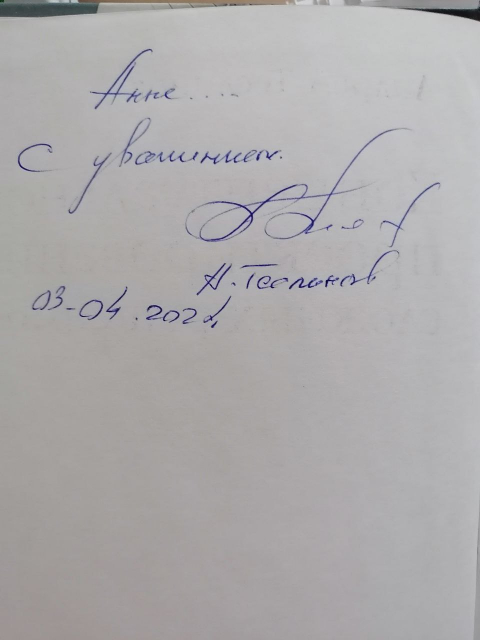 Анне....
С уважением.
А.
03-04.2024